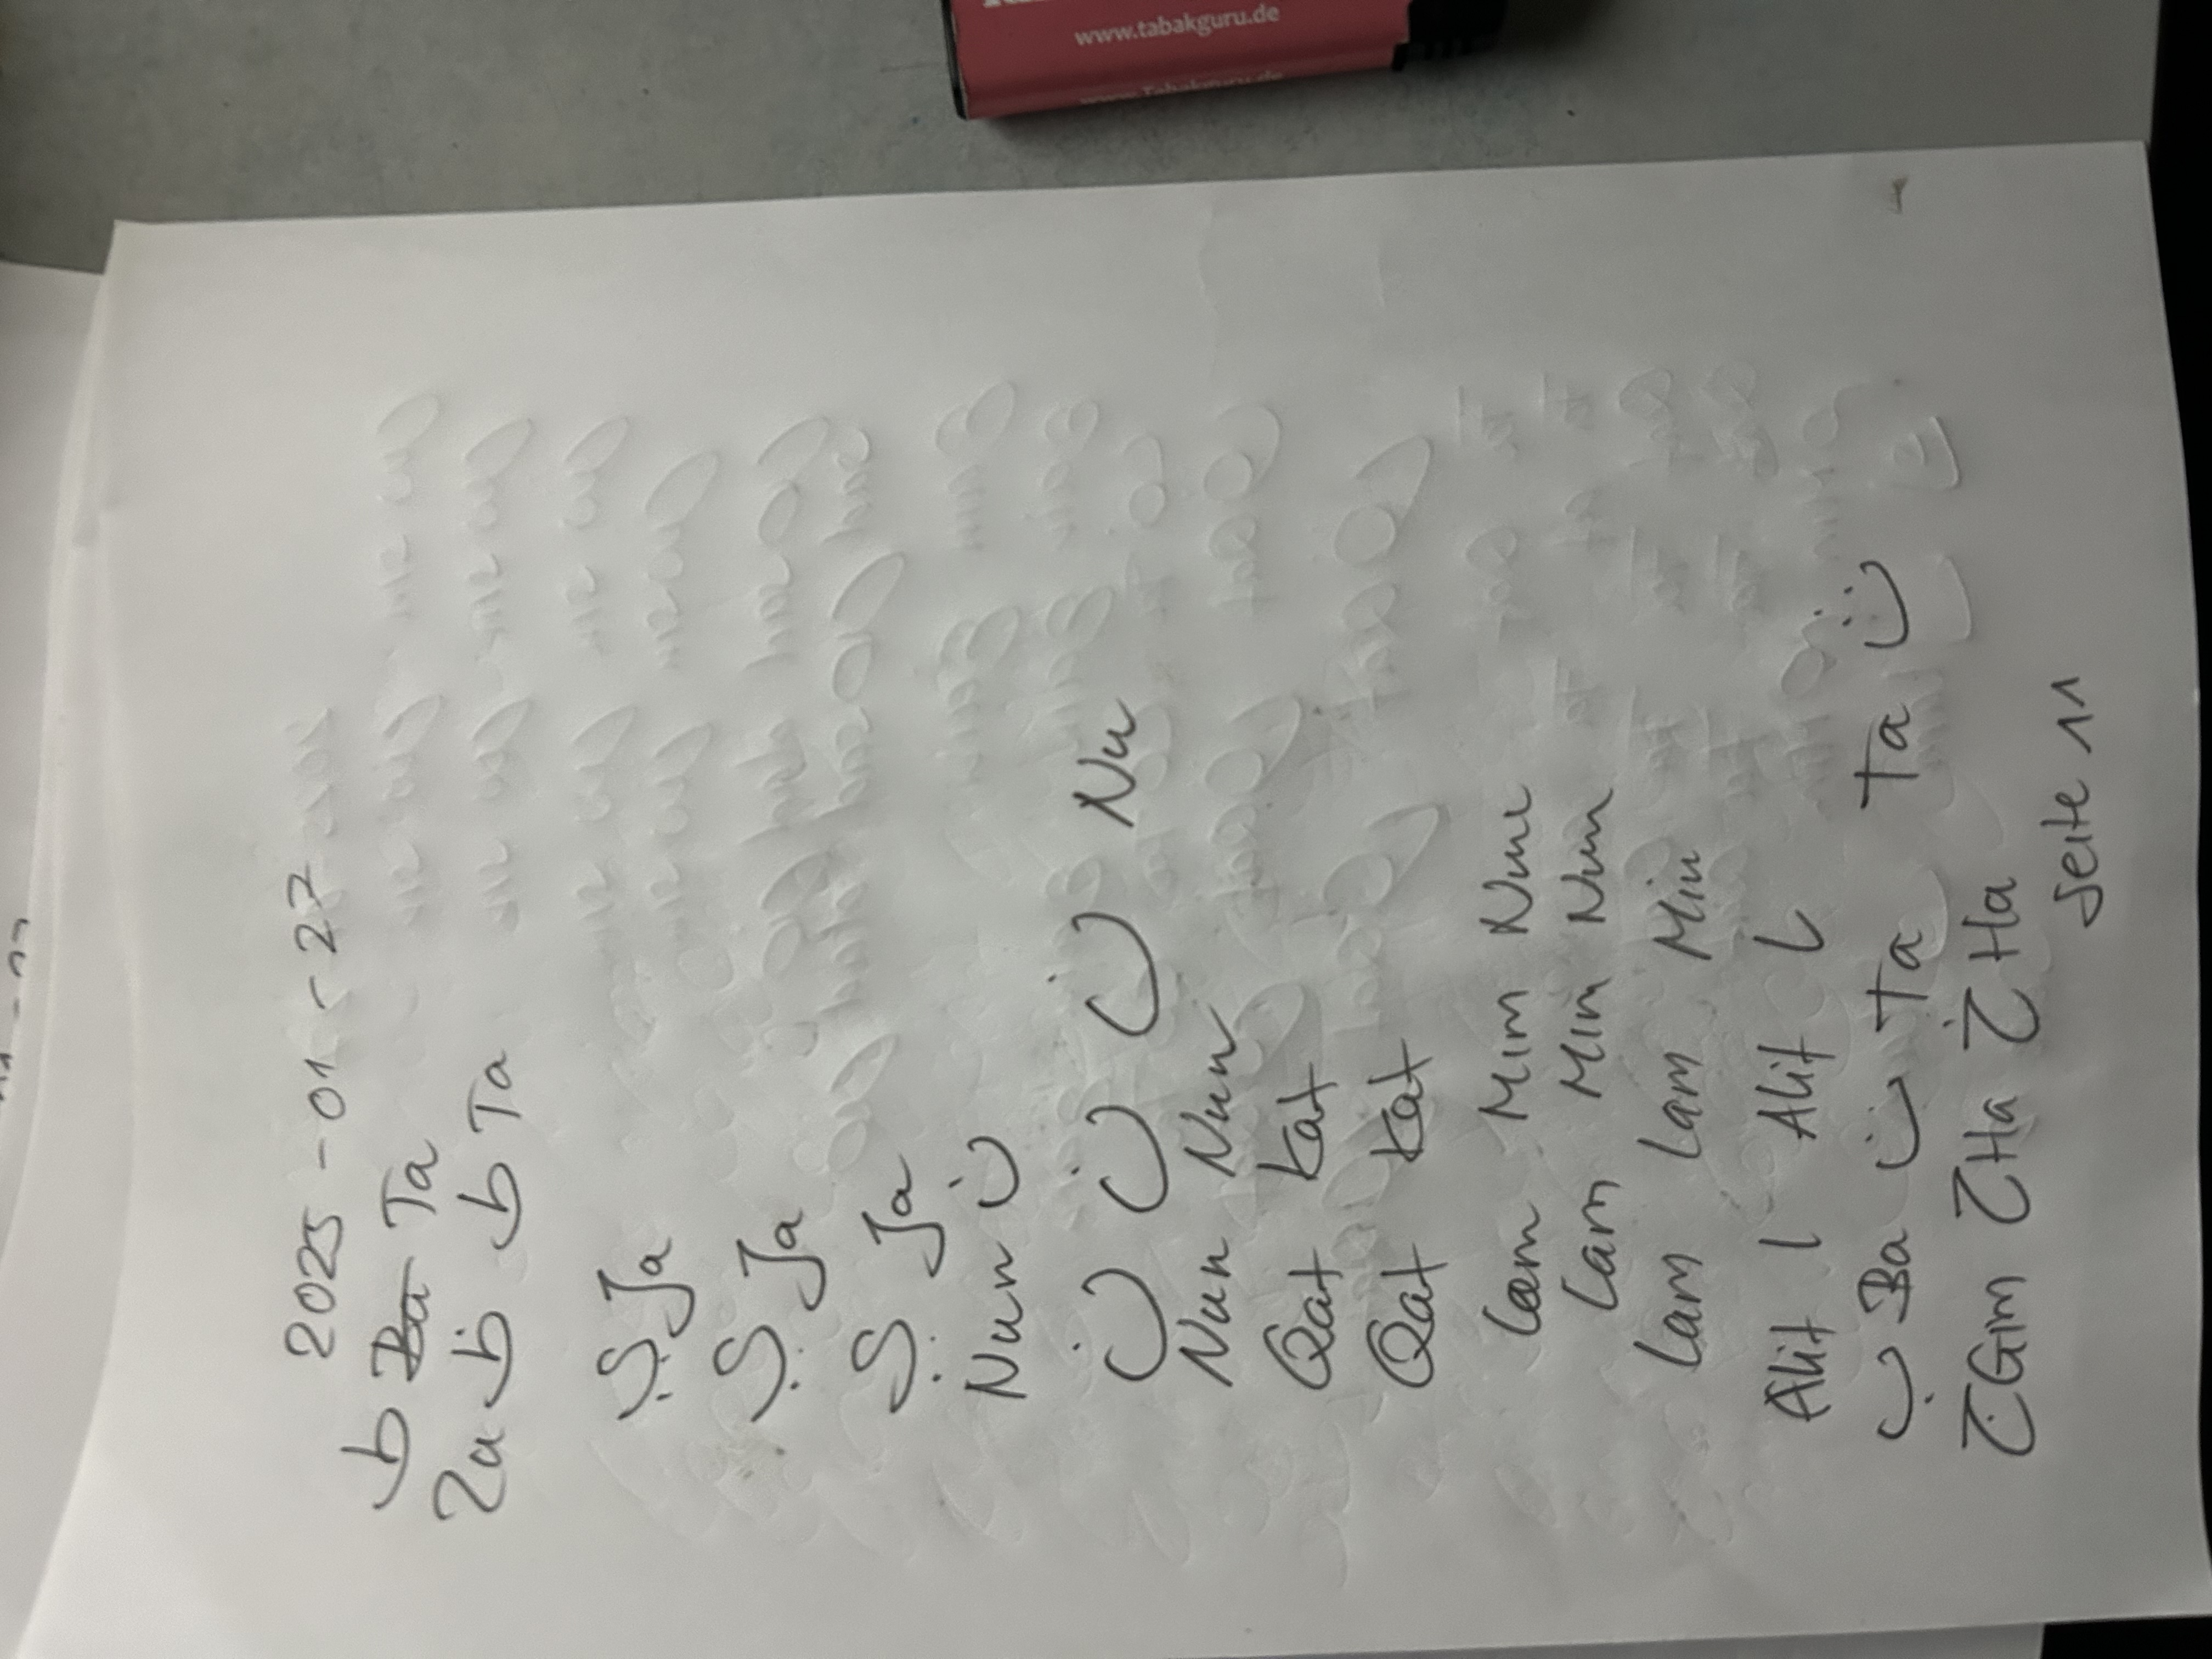 www.tabakguru.de
www.Tabakguru.de
2025-01-27
ط Ba Ta
Za ط ط Ta
ي Ja
ي Ja
ي Ja
Nun ن
ن ن ن Nu
Nun Nun
Qaf Kaf
Qaf Kaf
Lam Mim Num
Lam Mim Num
Lam Lam Mim
Alif ا Alif L
ب Ba ت Ta Ta ت
ج Gim ح Ha خ Ha
Seite 11